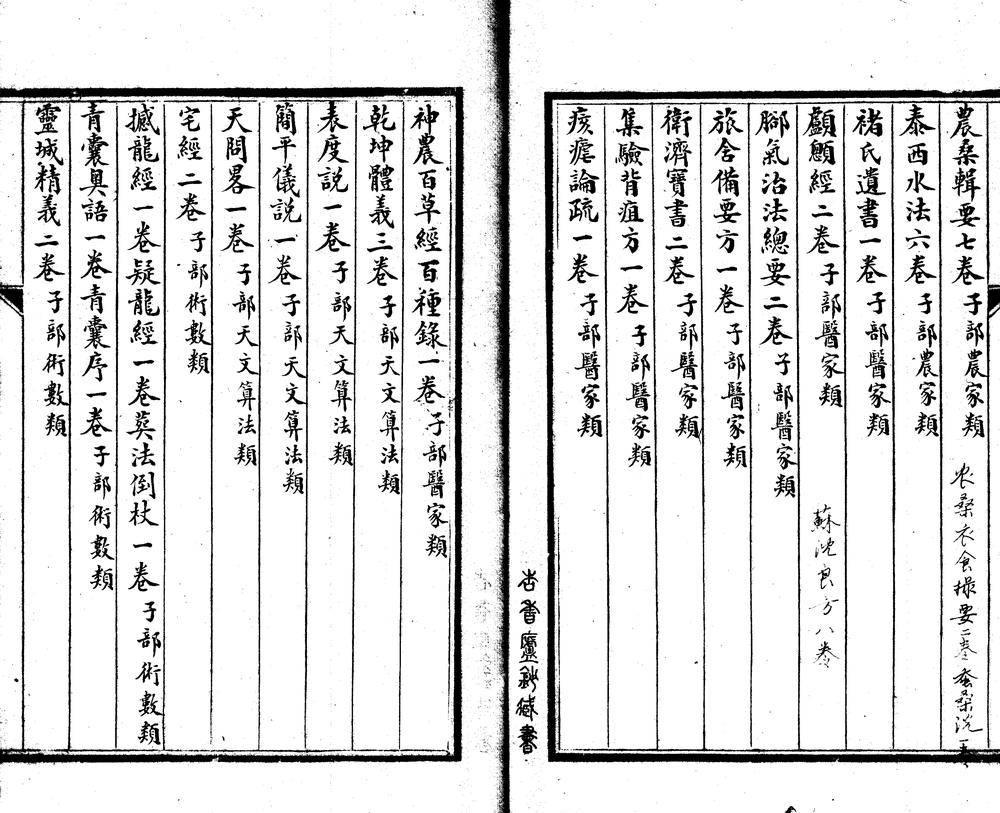 農桑輯要七卷子部農家類
农桑衣食撮要二卷蚕桑说一卷
泰西水法六卷子部農家類
褚氏遺書一卷子部醫家類
顱顖經二卷子部醫家類
蘇沈良方八卷
腳氣治法總要二卷子部醫家類
旅舍備要方一卷子部醫家類
衛濟寶書二卷子部醫家類
集驗背疽方一卷子部醫家類
痎瘧論疏一卷子部醫家類
神農百草經百種錄一卷子部醫家類
乾坤體義三卷子部天文算法類
表度說一卷子部天文算法類
簡平儀說一卷子部天文算法類
天問畧一卷子部天文算法類
宅經二卷子部術數類
撼龍經一卷疑龍經一卷葬法倒杖一卷子部術數類
青囊奥語一卷青囊序一卷子部術數類
靈城精義二卷子部術數類